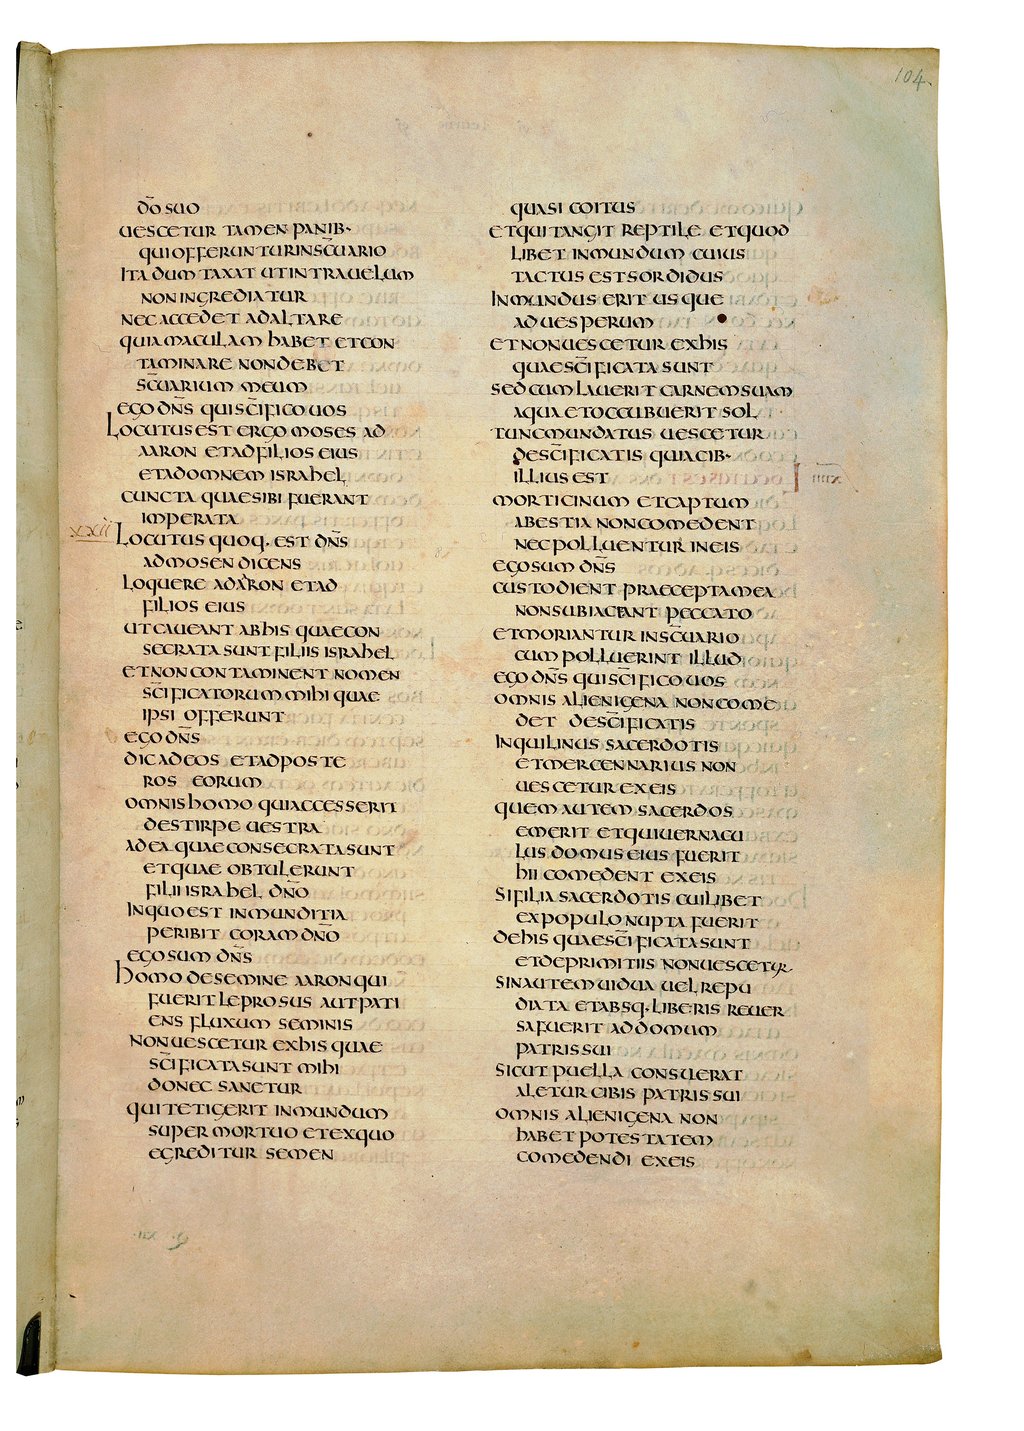 104
do suo
uescetur tamen panib·
qui offeruntur in scuario
Ita dum taxat ut intra uelum
non ingrediatur
nec accedet ad altare
quia maculam habet et con
taminare non debet
scuarium meum
ego dns qui scifico uos
Locutus est ergo moses ad
aaron et ad filios eius
et ad omnem israhel
cuncta quae sibi fuerant
imperata
xxii
Locutus quoq· est dns
ad mosen dicens
Loquere ad aaron et ad
filios eius
ut caueant ab his quae con
secrata sunt filiis israhel
et non contaminent nomen
scificatorum mihi quae
ipsi offerunt
ego dns
dic ad eos et ad poste
ros eorum
omnis homo qui accesserit
de stirpe uestra
ad ea quae consecrata sunt
et quae obtulerunt
filii israhel dno
In quo est inmunditia
peribit coram dno
ego sum dns
homo de semine aaron qui
fuerit leprosus aut pati
ens fluxum seminis
non uescetur ex his quae
scificata sunt mihi
donec sanetur
qui tetigerit inmundum
super mortuo et ex quo
egreditur semen
quasi coitus
et qui tangit reptile et quod
libet inmundum cuius
tactus est sordidus
Inmundus erit usque
ad uesperum
et non uescetur ex his
quae scificata sunt
sed cum lauerit carnem suam
aqua et occubuerit sol
tunc mundatus uescetur
de scificatis quia cib·
illius est
morticinum et captum
a bestia non comedent
nec polluentur in eis
ego sum dns
custodient praecepta mea
non subiaceant peccato
et moriantur in scuario
cum polluerint illud
ego dns qui scifico uos
omnis alienigena non come
det de scificatis
Inquilinus sacerdotis
et mercennarius non
uescetur ex eis
quem autem sacerdos
emerit et qui uernacu
lus domus eius fuerit
hii comedent ex eis
si filia sacerdotis cuilibet
ex populo nupta fuerit
de his quae scificata sunt
et de primitiis non uescetur
sin autem uidua uel repu
diata et absq· liberis reuer
sa fuerit ad domum
patris sui
sicut puella consuerat
aletur cibis patris sui
omnis alienigena non
habet potestatem
comedendi ex eis